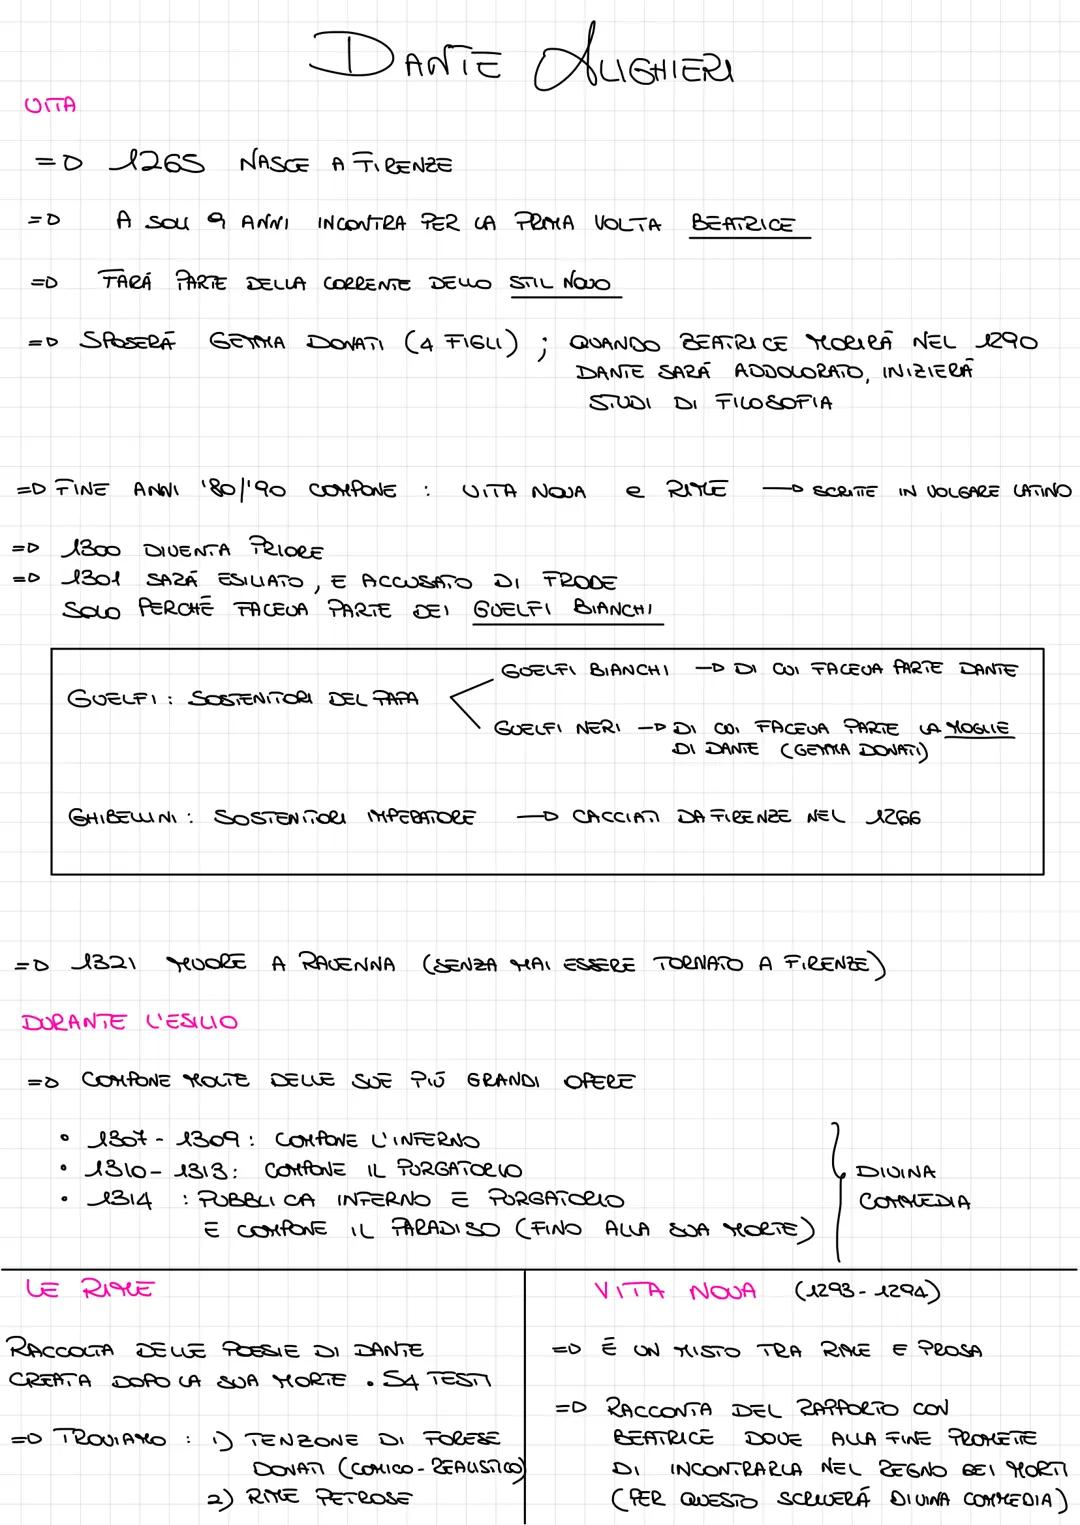 DANTE ALIGHIERI
VITA
=D 1265 NASCE A FIRENZE
=D A SOLI 9 ANNI INCONTRA PER LA PRIMA VOLTA BEATRICE
=D FARÁ PARTE DELLA CORRENTE DELLO STIL NOVO
=D SPOSERÁ GEMMA DONATI (4 FIGLI) ; QUANDO BEATRICE MORIRÁ NEL 1290
DANTE SARÁ ADDOLORATO, INIZIERÁ
STUDI DI FILOSOFIA
=D FINE ANNI '80/'90 COMPONE : VITA NOVA e RIME —D SCRITTE IN VOLGARE LATINO
=D 1300 DIVENTA PRIORE
=D 1301 SARÁ ESILIATO, E ACCUSATO DI FRODE
SOLO PERCHÉ FACEVA PARTE DEI GUELFI BIANCHI
GUELFI BIANCHI —D DI CUI FACEVA PARTE DANTE
GUELFI : SOSTENITORI DEL PAPA
GUELFI NERI —D DI CUI FACEVA PARTE LA MOGLIE
DI DANTE (GEMMA DONATI)
GHIBELLINI : SOSTENITORI IMPERATORE —D CACCIATI DA FIRENZE NEL 1266
=D 1321 MUORE A RAVENNA (SENZA MAI ESSERE TORNATO A FIRENZE)
DURANTE L'ESILIO
=D COMPONE MOLTE DELLE SUE PIÚ GRANDI OPERE
• 1307 - 1309 : COMPONE L'INFERNO
• 1310 - 1313 : COMPONE IL PURGATORIO
• 1314 : PUBBLICA INFERNO E PURGATORIO
E COMPONE IL PARADISO (FINO ALLA SUA MORTE)
DIVINA
COMMEDIA
LE RIME
RACCOLTA DELLE POESIE DI DANTE
CREATA DOPO LA SUA MORTE . 54 TESTI
=D TROVIAMO : 1) TENZONE DI FORESE
DONATI (COMICO - REALISTICO)
2) RIME PETROSE
VITA NOVA (1293 - 1294)
=D É UN MISTO TRA RIME E PROSA
=D RACCONTA DEL RAPPORTO CON
BEATRICE DOVE ALLA FINE PROMETTE
DI INCONTRARLA NEL REGNO DEI MORTI
(PER QUESTO SCRIVERÁ DIVINA COMMEDIA)